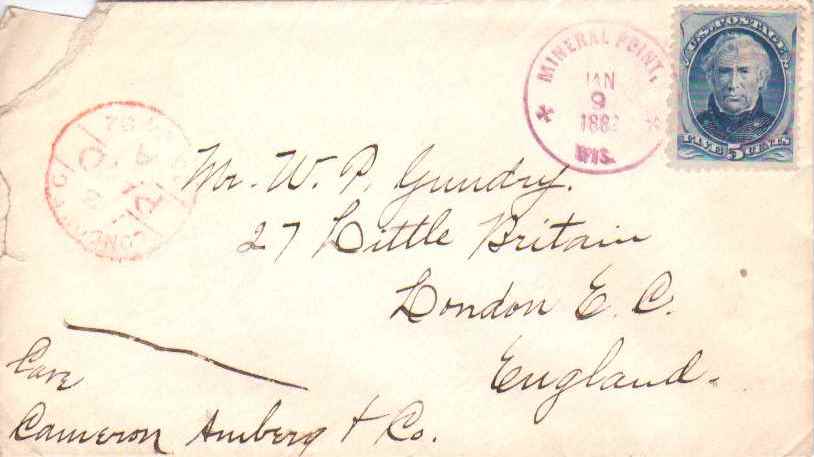 MINERAL POINT,
JAN
9
WIS.
U.S. POSTAGE
FIVE 5 CENTS
LONDON
Mr. W. P. Gundry.
27 Little Britain
London E. C.
England.
Care
Cameron Amberg & Co.